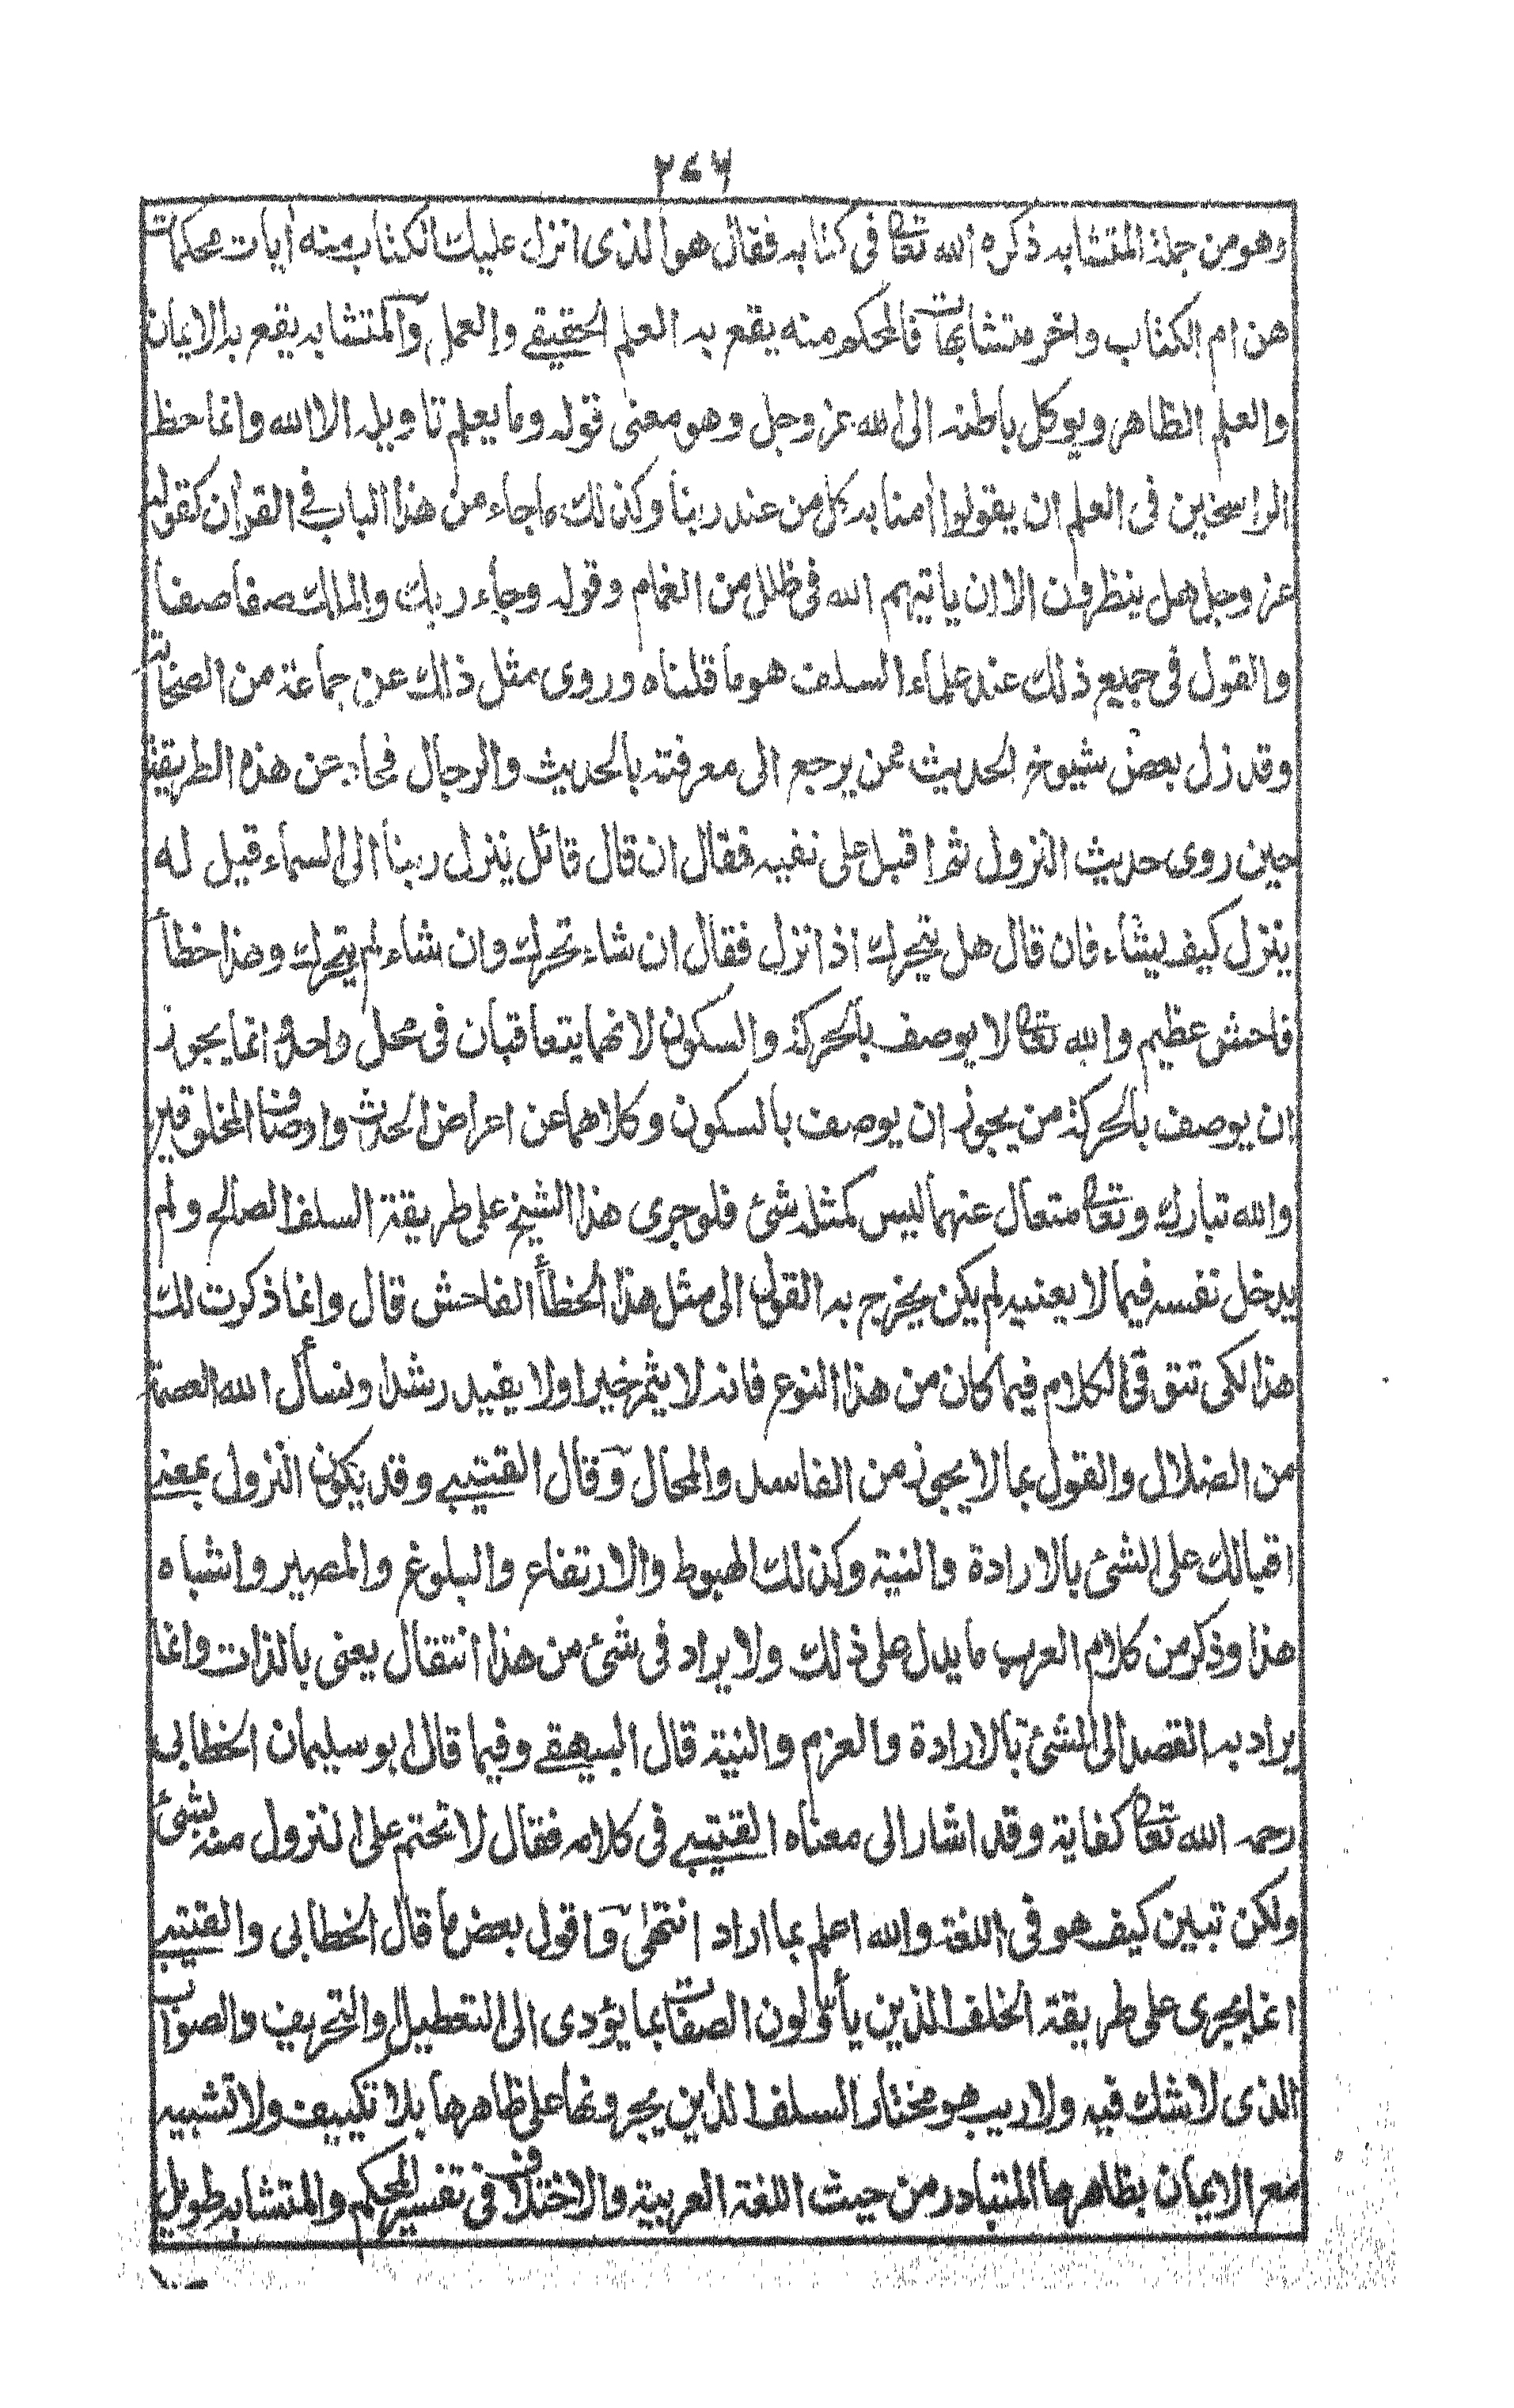 ٢٧٦
وهو من جملة المتشابه ذكره الله تعالى في كتابه فقال هو الذى انزل عليك الكتاب منه أيات محكمات
هن ام الكتاب واخر متشابهات فالمحكم منه يقع به العلم الحقيقى والعمل والمتشابه يقع به الايمان
والعلم الظاهر ويوكل باطنه الى الله عز وجل وهو معنى قوله وما يعلم تاويله الا الله وانما حظ
الراسخين فى العلم ان يقولوا أمنا به كل من عند ربنا وكذلك ما جاء من هذا الباب في القرأن كقوله
عز وجل هل ينظرون الا ان ياتيهم الله فى ظلل من الغمام وقوله وجاء ربك والملك صفا صفا
والقول فى جميع ذلك عند علماء السلف هو ما قلناه وروى مثل ذلك عن جماعة من الصحابة
وقد زل بعض شيوخ الحديث ممن يرجع الى معرفته بالحديث والرجال فحاد عن هذه الطريقة
حين روى حديث النزول ثم اقبل على نفيه فقال ان قال قائل ينزل ربنا الى السماء قيل له
ينزل كيف يشاء فان قال هل يتحرك اذا نزل فقال ان شاء تحرك وان شاء لم يتحرك وهذا خطأ
فاحش عظيم والله تعالى لا يوصف بالحركة والسكون لانهما يتعاقبان فى محل واحد وانما يجوز
ان يوصف بالحركة من يجوز ان يوصف بالسكون وكلاهما عن اعراض الحدث واوصاف المخلوقين
والله تبارك وتعالى متعال عنهما ليس كمثله شئ فلو جرى هذا الشيخ على طريقة السلف الصالح ولم
يدخل نفسه فيما لا يعنيه لم يكن يخرج به القول الى مثل هذا الخطأ الفاحش قال وانما ذكرت لك
هذا لكى تتق فى الكلام فيما كان من هذا النوع فانه لا يثمر خيرا ولا يفيد رشدا ونسأل الله العصمة
من الضلال والقول بما لا يجوز من الفاسد والمحال وقال القتيبى وقد يكون النزول بمعنى
اقبالك على الشئ بالارادة والنية وكذلك الهبوط والارتفاع والبلوغ والمصير واشباه
هذا وذكر من كلام العرب ما يدل على ذلك ولا يراد فى شئ من هذا انتقال يعنى بالذات وانما
يراد به القصد الى الشئ بالارادة والعزم والنية قال البيهقى وفيما قال ابو سليمان الخطابى
رحمه الله تعالى كفاية وقد اشار الى معناه القتيبى فى كلامه فقال لا تحتم على النزول منه بشئ
ولكن تبين كيف هو فى اللغة والله اعلم بما اراد انتهى واقول بعض ما قال الخطابى والقتيبى
انما يجرى على طريقة الخلف الذين يأولون الصفات بما يؤدى الى التعطيل والتحريف والصواب
الذى لا شك فيه ولا ريب هو مختار السلف الذين يجرونها على ظاهرها بلا تكييف ولا تشبيه
مع الايمان بظاهرها المتبادر من حيث اللغة العربية والاختلاف فى تفسير المحكم والمتشابه طويل